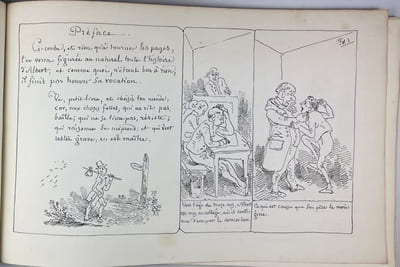 Préface.
Ci-contre, et rien qu'à tourner les pages,
l'on verra figurée au naturel toute l'histoire
d'Albert; et comme quoi, n'étant bon à rien,
il finit par trouver sa vocation.
Va, petit livre, et choisis ton monde;
car, aux choses folles, qui ne rit pas,
bâille; qui ne se livre pas, résiste;
qui raisonne, se méprend; et qui veut
rester grave, en est maître.
Vers l'âge de treize ans, Albert
est mis au collège, où il
le dernier banc.
Ce qui est cause que son père le